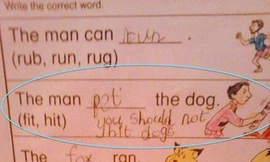 Write the correct word.
The man can run .
(rub, run, rug)
The man pot the dog.
(fit, hit) you should not
hit dogs
The fox ran